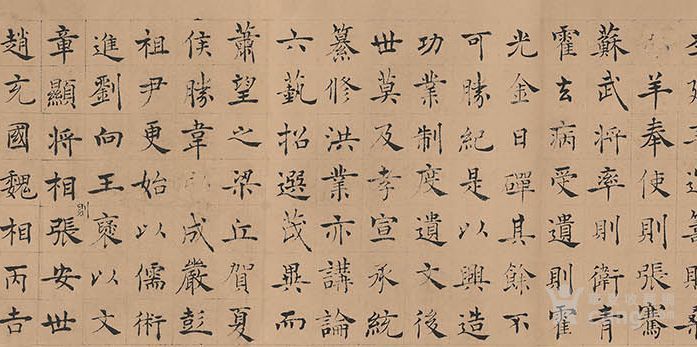 羊奉使則張騫
蘇武將率則衛青
霍去病受遺則霍
光金日磾其餘不
可勝紀是以興造
功業制度遺文後
世莫及孝宣承統
纂修洪業亦講論
六藝招選茂異而
蕭望之梁丘賀夏
侯勝韋成嚴彭
祖尹更始以儒術
進劉向王褒以文
章顯將相則張安世
趙充國魏相丙吉